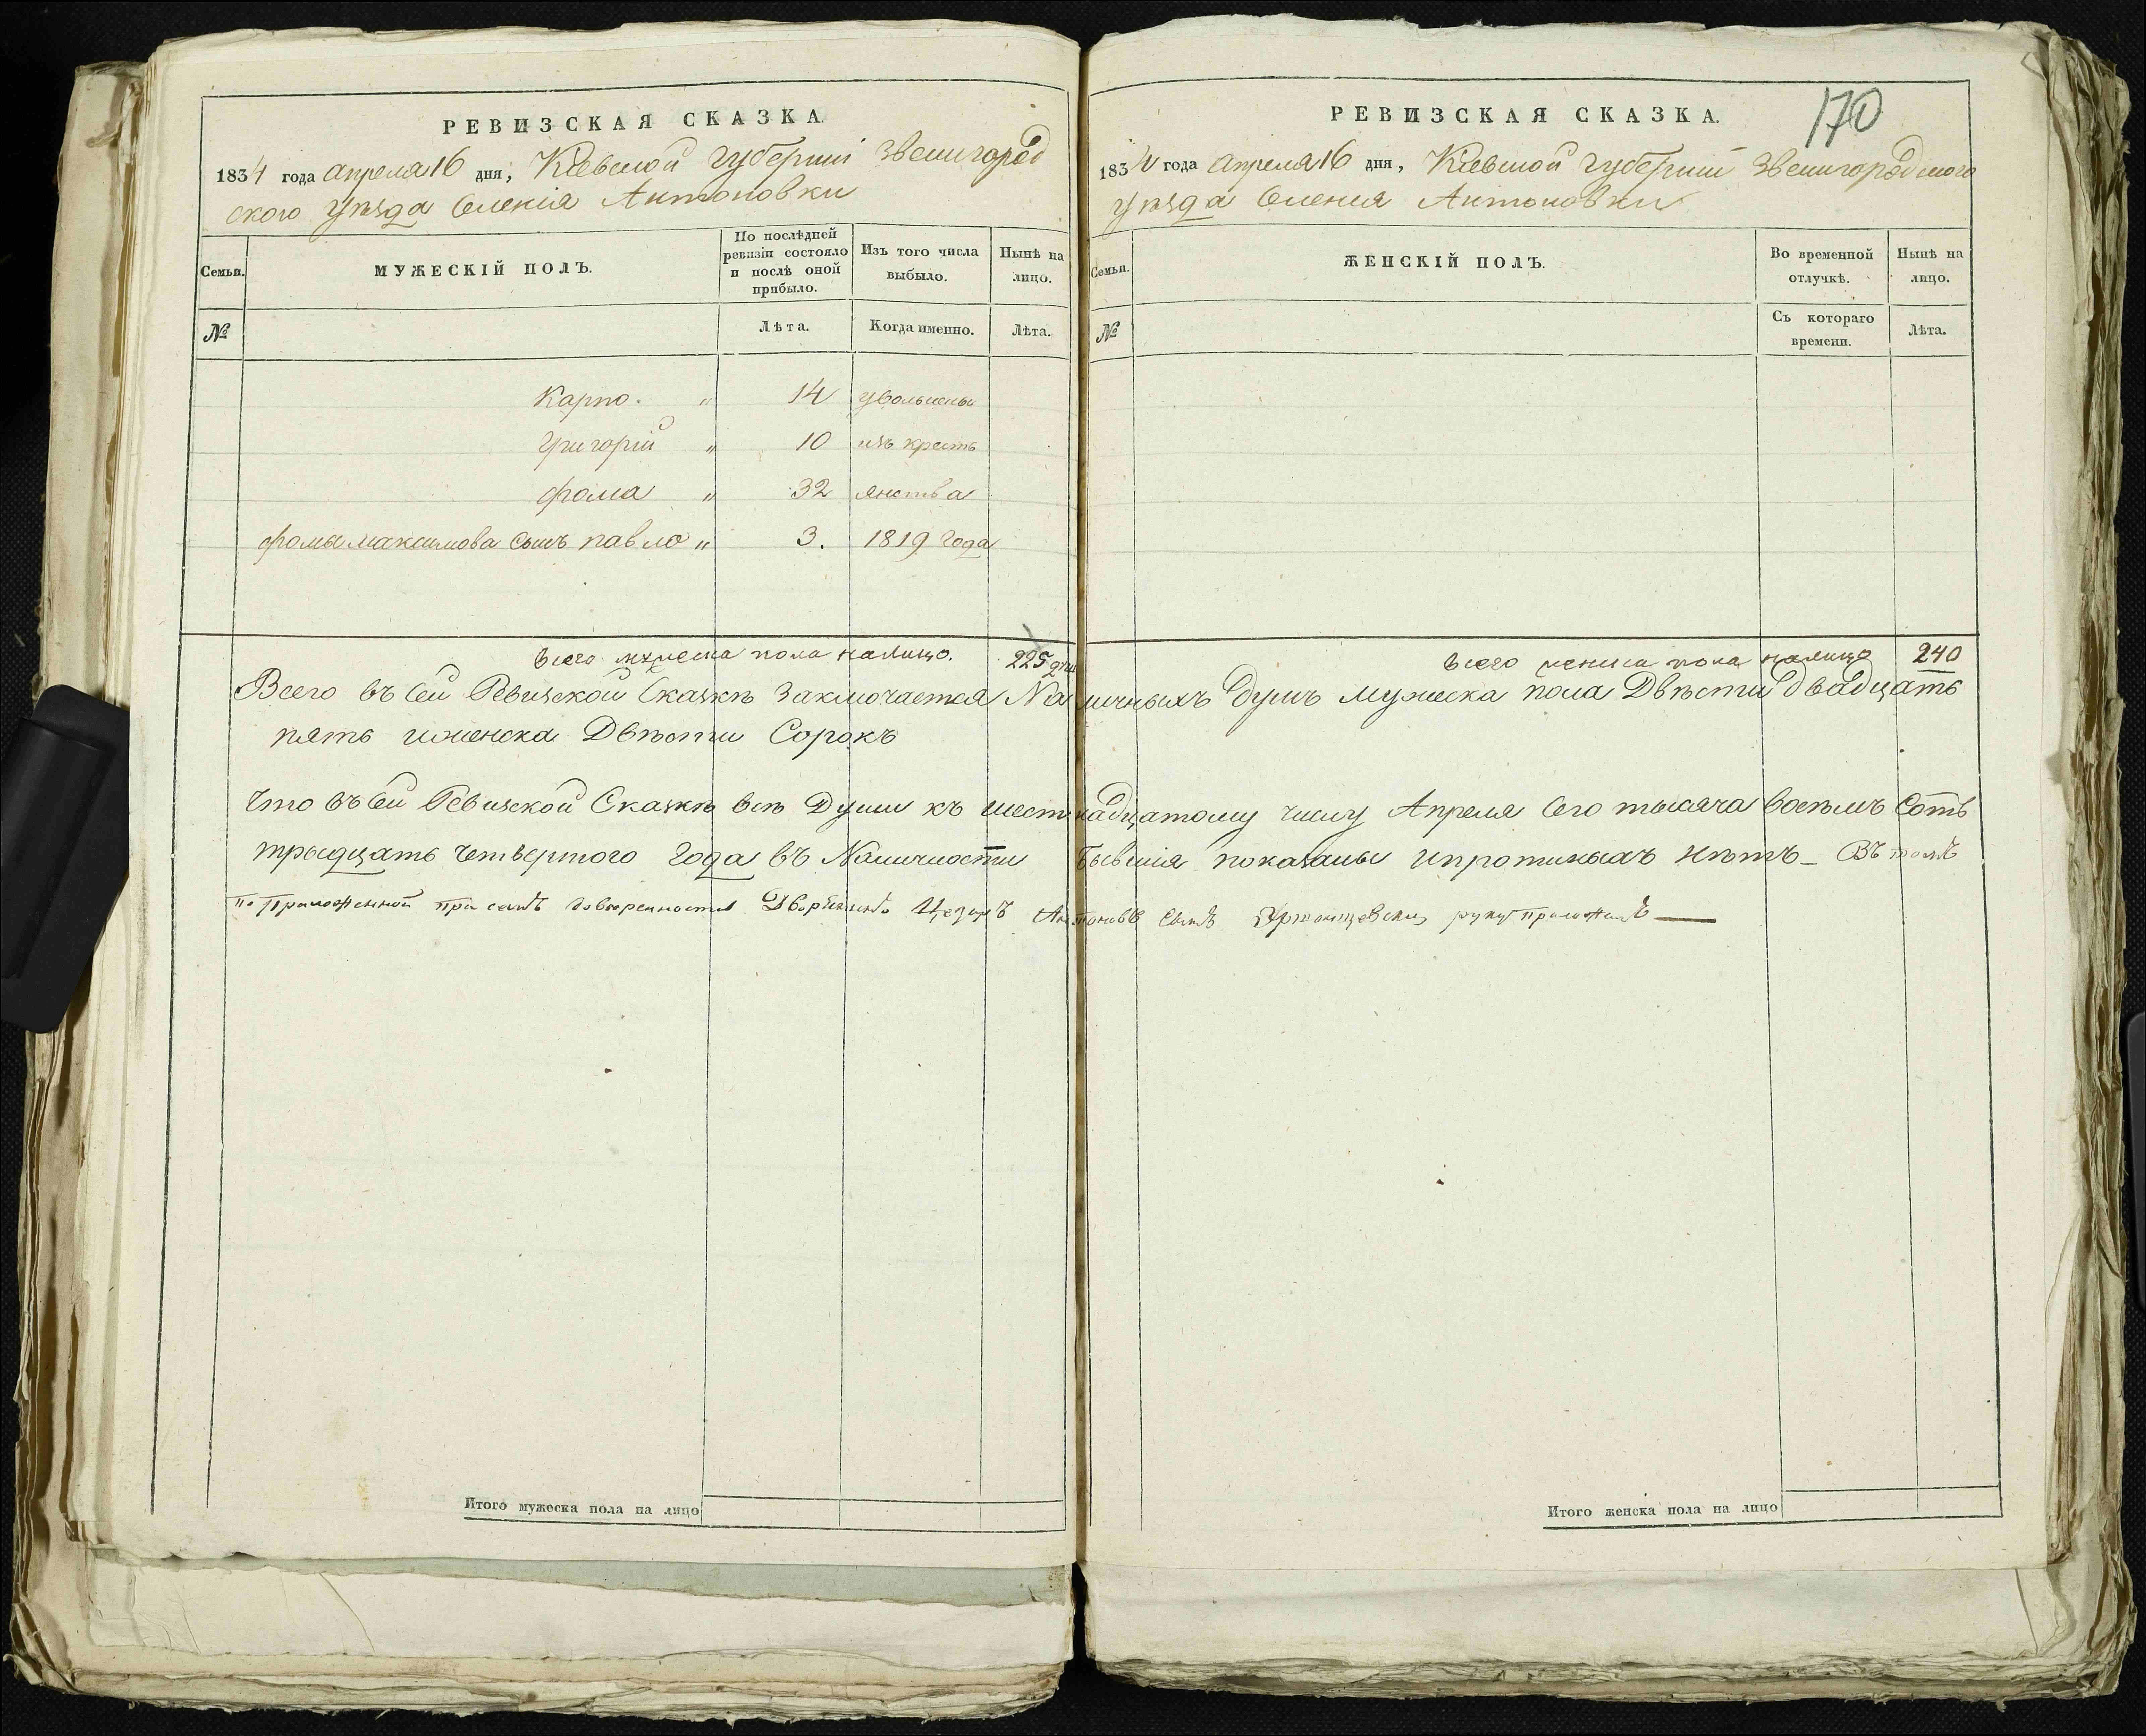 РЕВИЗСКАЯ СКАЗКА.
1834 года апреля 16 дня, Кіевской губерніи Звенигород
ского уѣзда Селенія Антоновки
Семьи.
МУЖЕСКІЙ ПОЛЪ.
По послѣдней ревизіи состояло и послѣ оной прибыло.
Изъ того числа выбыло.
Нынѣ на лицо.
№
Лѣта.
Когда именно.
Лѣта.
Карпо. " 14 уволнены
Григорій " 10 изъ кресть
Фома " 32 янства
Фомы Максимова сынъ Павло " 3. 1819 года
всего мужеска пола налицо. 225 душ
Итого мужеска пола на лицо
170
РЕВИЗСКАЯ СКАЗКА.
1834 года апреля 16 дня, Кіевской губерніи Звенигородского
уѣзда Селения Антоновки
Семьи.
ЖЕНСКІЙ ПОЛЪ.
Во временной отлучкѣ.
Нынѣ на лицо.
№
Съ котораго времени.
Лѣта.
всего женска пола налицо 240
Всего въ сей Ревизской Сказкѣ Заключается Наличныхъ душъ мужеска пола Двѣсти двадцать
пять и женска Двѣсти Сорокъ
Что въ сей Ревизской Сказкѣ всѣ Души къ шестнадцатому числу Апреля сего тысяча восемъ Сотъ
трыдцать четвертого года въ Наличности бывшія показаны и протчихъ нѣтъ Въ томъ
по приложенной при семъ доверенности Дворянинъ Цезарь Антоновъ сынъ руку приложилъ
Итого женска пола на лицо